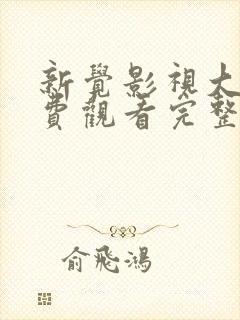 新覺影視大
費觀看完整
俞飛鴻